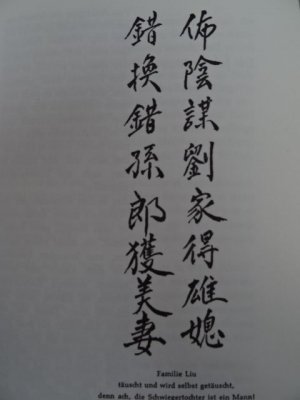 佈陰謀劉家得雄媳
錯換錯孫郎獲美妻
Familie Liu
täuscht und wird selbst getäuscht,
denn ach, die Schwiegertochter ist ein Mann!